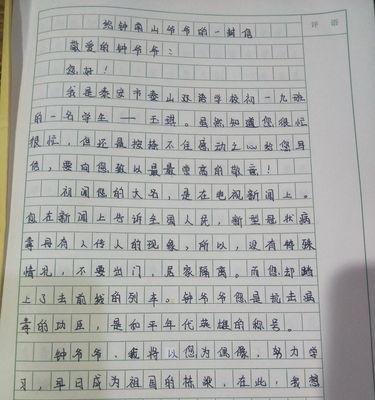 评语
给钟南山爷爷的一封信
敬爱的钟爷爷：
您好！
我是泰安市泰山双语学校初一九班
的一名学生——王骐。虽然知道您很忙
很忙，但还是按捺不住感动之心给您写
信，要向您致以最最崇高的敬意！
初闻您的大名，是在电视新闻上。
您在新闻上告诉全国人民，新型冠状病
毒毋有人传人的现象，所以，没有特殊
情况，不要出门，居家隔离。而您却踏
上了去前线的列车。钟爷爷您是抗击病
毒的功臣，是和平年代英雄的称号。
钟爷爷，我将以您为偶像，努力学
习，早日成为祖国的栋梁，在此，我想